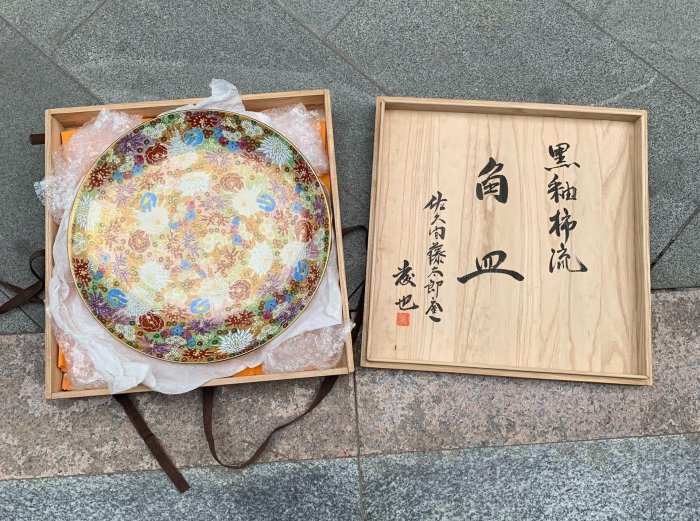 黒釉柿流
角皿
佐久間藤太郎窯